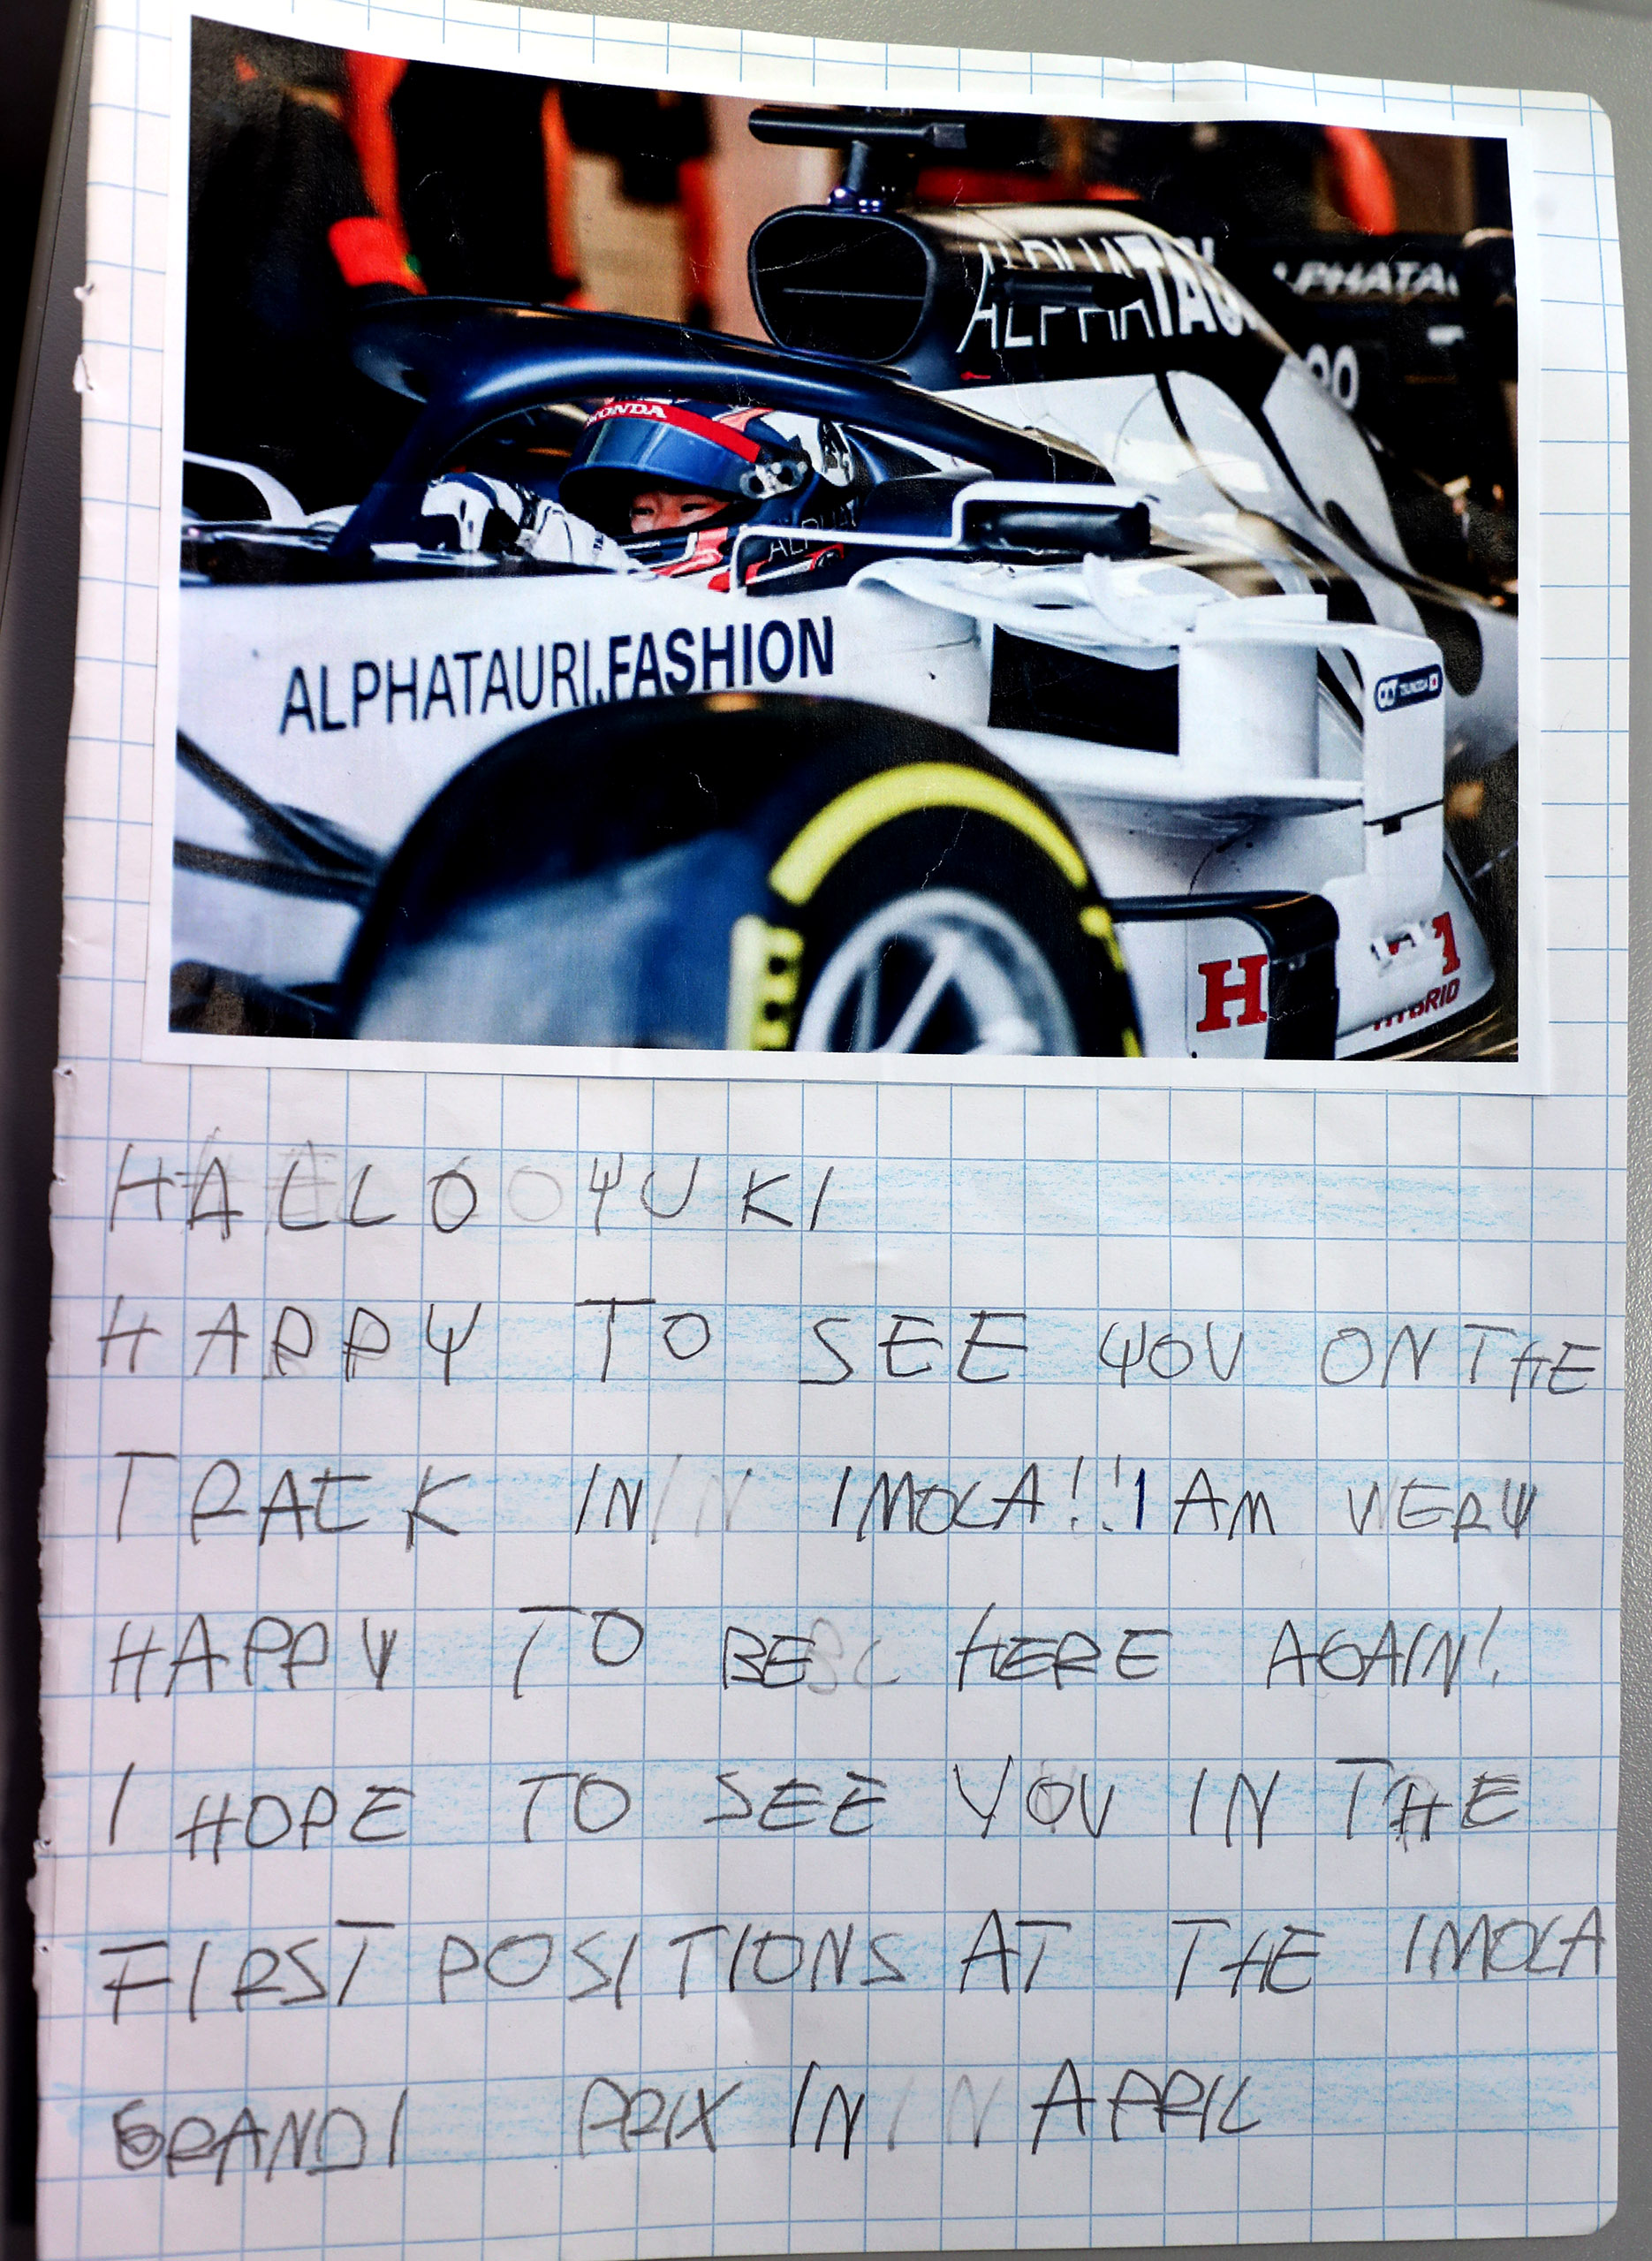 ALPHATAU
LPHATA
HONDA
ALPHAT
ALPHATAURI.FASHION
TSUNODA
H
HYBRID
HALLO YUKI
HAPPY TO SEE YOU ON THE
TRACK IN IMOLA!!I AM WERY
HAPPY TO BE HERE AGAIN!
I HOPE TO SEE YOU IN THE
FIRST POSITIONS AT THE IMOLA
GRANDI PRIX IN APRIL